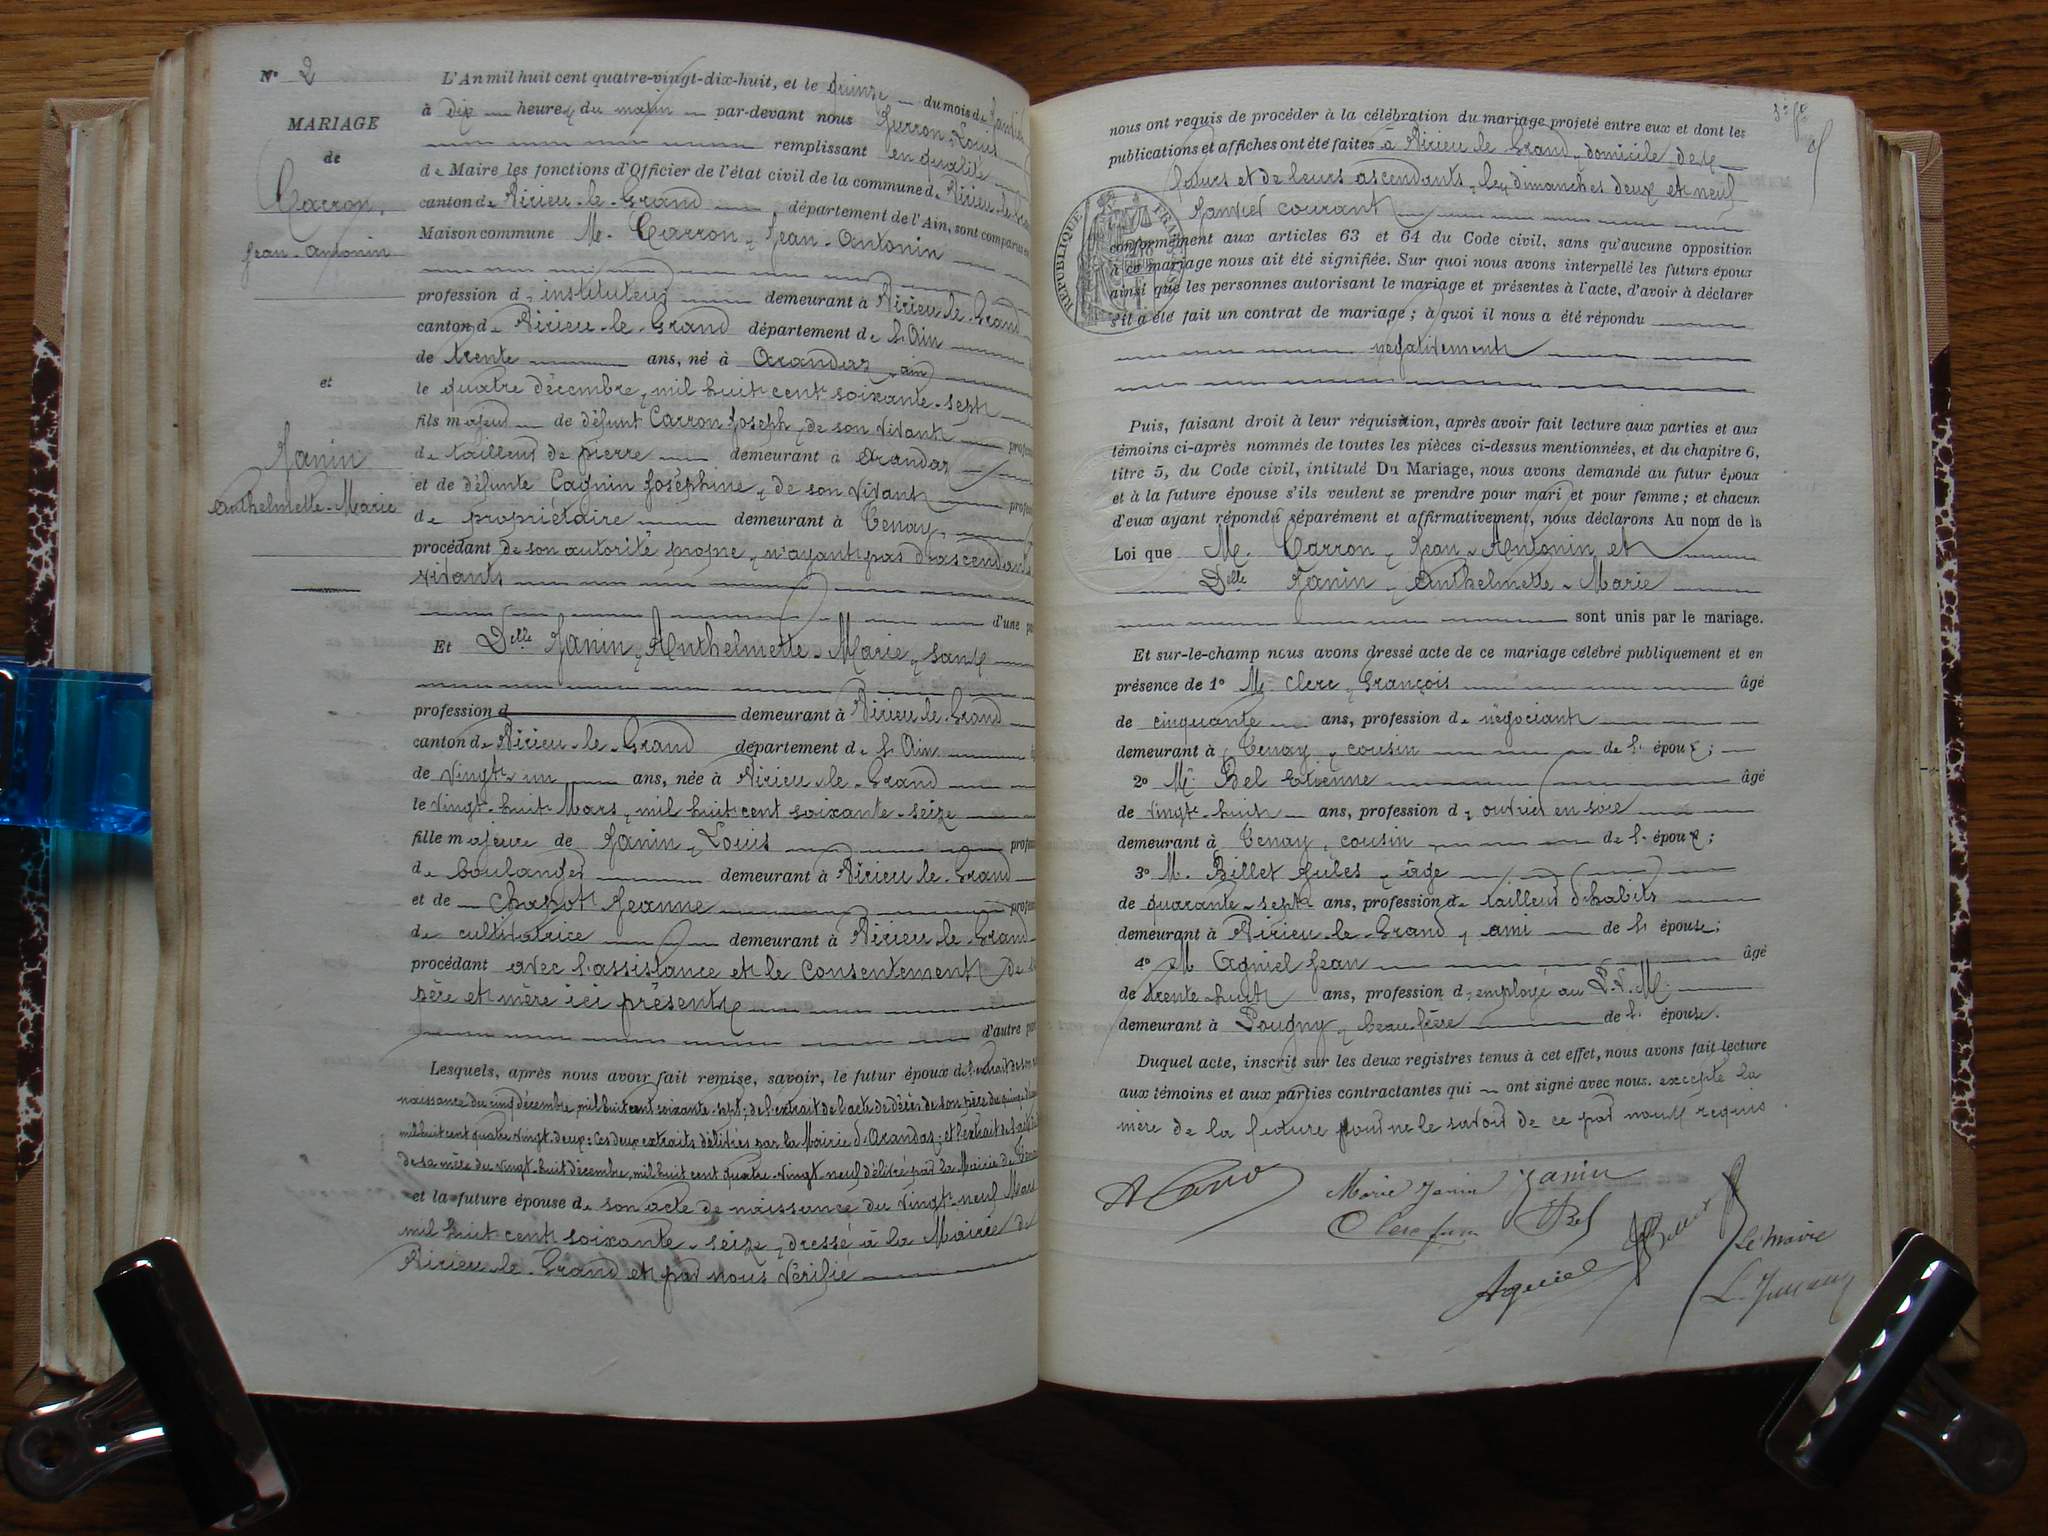 N° 2
MARIAGE
de
Carron,
Jean-Antonin
et
Janin
Anthelmette-Marie
L'An mil huit cent quatre-vingt-dix-huit, et le quinze du mois de Janvier
à Dix heures du matin par-devant nous Juvron Louis
remplissant en qualité
de Maire les fonctions d'Officier de l'état civil de la commune de Virieu-le-Gra
canton de Virieu-le-Grand département de l'Ain, sont comparus en
Maison commune M. Carron, Jean-Antonin
profession d'instituteur demeurant à Virieu-le-Grand
canton de Virieu-le-Grand département de l'Ain
de trente ans, né à Arandaz, ain
le quatre décembre, mil huit cent soixante-sept
fils majeur de défunt Carron Joseph, de son vivant profes
de tailleur de pierre demeurant à Arandaz
et de défunte Cagnin Joséphine, de son vivant profes
de propriétaire demeurant à Tenay,
procédant de son autorité propre, n'ayant pas d'ascendants
vivants
d'une pa
Et Delle Janin, Anthelmette-Marie, sans
profession d demeurant à Virieu-le-Grand
canton de Virieu-le-Grand département de l'Ain
de vingt-un ans, née à Virieu-le-Grand
le vingt-huit Mars, mil huit cent soixante-seize
fille majeure de Janin, Louis profes
de boulanger demeurant à Virieu-le-Grand
et de Chapot Jeanne profes
de cultivatrice demeurant à Virieu-le-Grand
procédant avec l'assistance et le consentement de s
père et mère ici présents
d'autre par
Lesquels, après nous avoir fait remise, savoir, le futur époux de l'extrait de son
naissance du cinq décembre, mil huit cent soixante-sept; de l'extrait de l'acte de décès de son père du quinze
mil huit cent quatre-vingt-deux: Ces deux extraits délivrés par la Mairie d'Arandaz; et l'extrait de l'acte
de sa mère du vingt-huit décembre, mil huit cent quatre-vingt-neuf délivré par la Mairie de Tenay
et la future épouse de son acte de naissance du vingt-neuf Mars
mil huit cent soixante-seize, dressé à la Mairie de
Virieu-le-Grand et par nous vérifié
3e fo
nous ont requis de procéder à la célébration du mariage projeté entre eux et dont les
publications et affiches ont été faites à Virieu le Grand, domicile des
futurs et de leurs ascendants, les dimanches deux et neuf
Janvier courant
RÉPUBLIQUE FRANÇAISE
conformément aux articles 63 et 64 du Code civil, sans qu'aucune opposition
à ce mariage nous ait été signifiée. Sur quoi nous avons interpellé les futurs époux
ainsi que les personnes autorisant le mariage et présentes à l'acte, d'avoir à déclarer
s'il a été fait un contrat de mariage; à quoi il nous a été répondu
négativement
Puis, faisant droit à leur réquisition, après avoir fait lecture aux parties et aux
témoins ci-après nommés de toutes les pièces ci-dessus mentionnées, et du chapitre 6,
titre 5, du Code civil, intitulé Du Mariage, nous avons demandé au futur époux
et à la future épouse s'ils veulent se prendre pour mari et pour femme; et chacun
d'eux ayant répondu séparément et affirmativement, nous déclarons Au nom de la
Loi que M. Carron, Jean-Antonin et
Delle Janin, Anthelmette-Marie
sont unis par le mariage.
Et sur-le-champ nous avons dressé acte de ce mariage célébré publiquement et en
présence de 1° M. Clerc, François âgé
de cinquante ans, profession de négociant
demeurant à Tenay, cousin de l'époux;
2° M. Bel Etienne âgé
de vingt-huit ans, profession d'ouvrier en soie
demeurant à Tenay, cousin de l'époux;
3° M. Billet Jules, âgé
de quarante-sept ans, profession de tailleur d'habits
demeurant à Virieu-le-Grand, ami de l'épouse;
4° M Agniel Jean âgé
de trente-huit ans, profession d'employé au P.L.M.
demeurant à Pougny, beau-frère de l'épouse.
Duquel acte, inscrit sur les deux registres tenus à cet effet, nous avons fait lecture
aux témoins et aux parties contractantes qui ont signé avec nous. excepté la
mère de la future pour ne le savoir de ce par nous requis.
A Carro
Marie Janin
Janin
Clerc
Bel
JBillet
Agniel
Le Maire